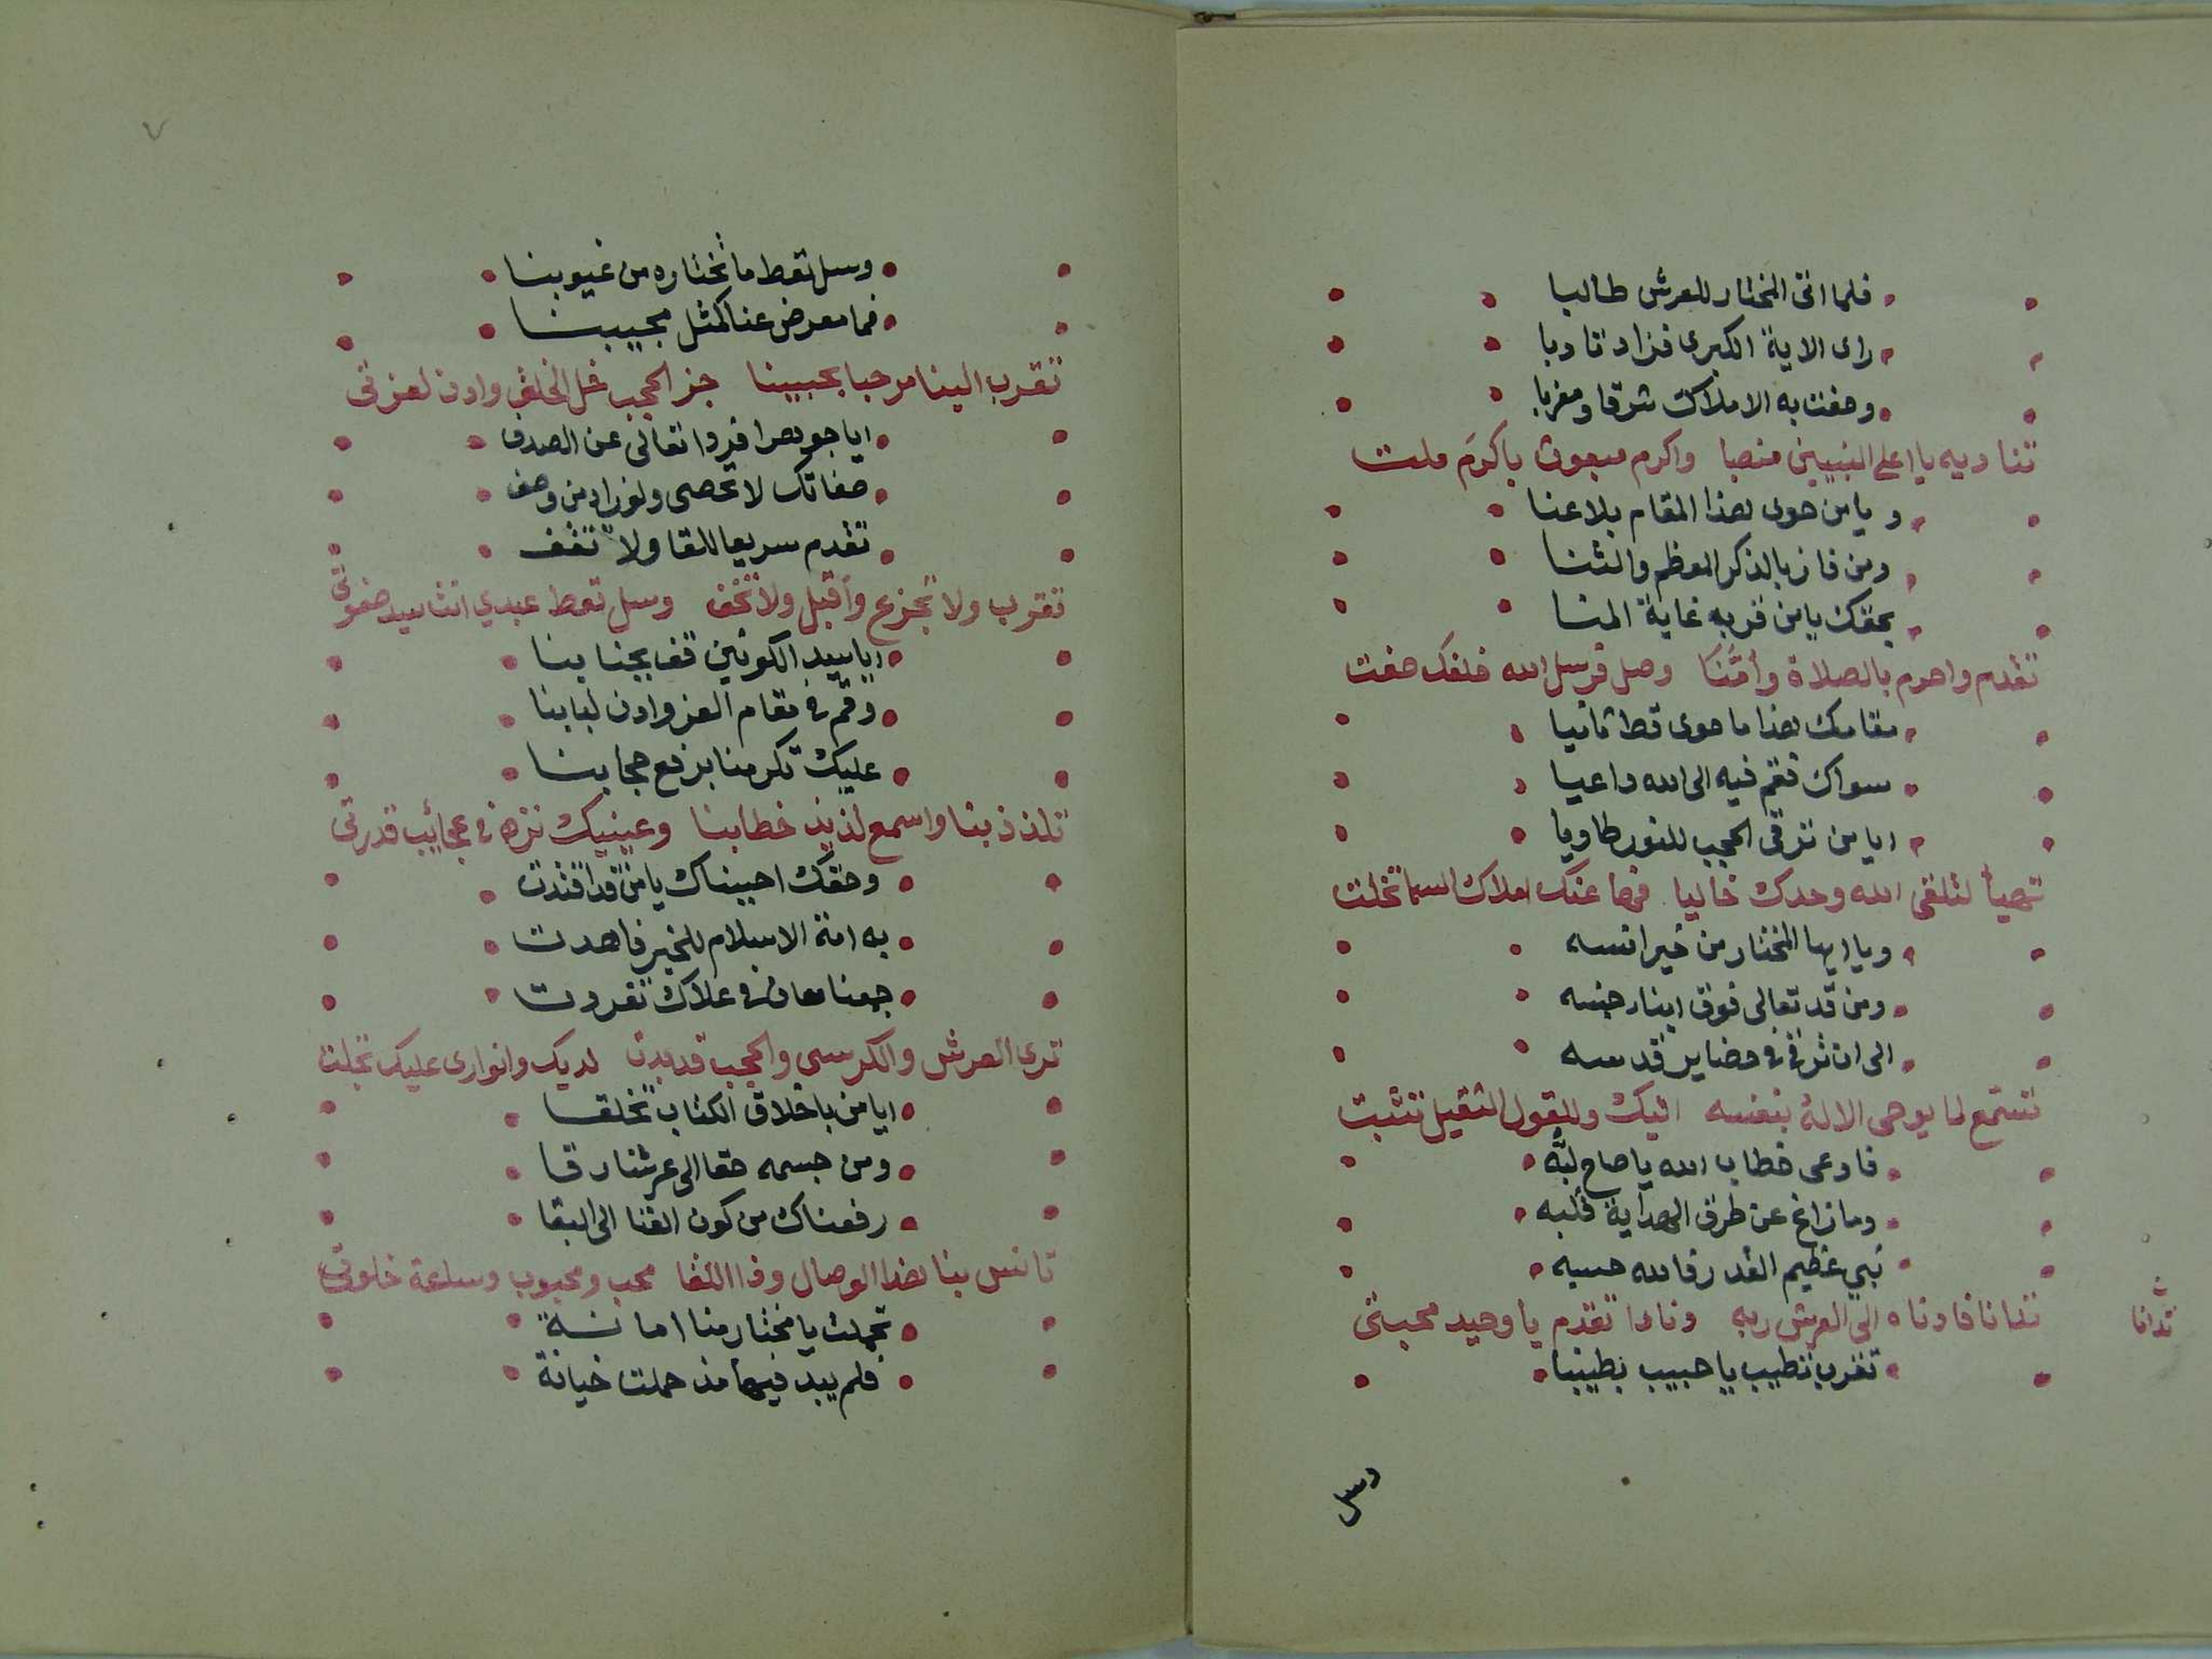 فلما اتى المختار للعرش طالبا
راى الاية الكبرى فزاد تادبا
وحفت به الاملاك شرقا ومغربا
تناديه يا اعلى النبيين منصبا واكرم مبعوث باكرَم ملت
و يا من حوى هذا المقام بلا عنا
ومن فاز بالذكر المعظم والثنا
بحقك يا من قربه غاية المنا
تقدم واحرم بالصلاة وأمَّنَا وصل فرسل الله خلفك صفت
مقامك هذا ما حوى قط ثانيا
سواك فقم فيه الى الله داعيا
ايا من ترقى الحجب للنور طاويا
تهيأ لتلقى الله وحدك خاليا فها عنك املاك السما تخلت
ويا ايها المختار من خير انسه
ومن قد تعالى فوق ابناء جنسه
الى ان ترقى في حضاير قدسه
تستمع لما يوحى الالهُ بنفسه اليك وللقول الثقيل تثبت
فاوعى خطاب الله يا صاح لبَّه
وما زاغ عن طرق الهداية قلبه
نبي عظيم القدر فالله حسبه
تفانا فادناه الى العرش ربه ونادا تقدم يا وحيد محبتي
تدانا
تقرب تطيب يا حبيب بطيبنا
وسل
٧
وسل تعط ما تختاره من غيوبنا
فما معرض عنا كمثل مجيبنا
تقرب الينا مرحبا بحبيبنا جز الحجب خل الخلق وادن لعزتي
ايا جوهرا فردا تعالى عن الصدف
صفاتك لا تحصى ولو زاد من وصف
تقدم سريعا للقا ولا تقف
تقرب ولا تجزع وأقبل ولا تخف وسل تعط عبدي انت سيد صفوتي
ايا سيد الكونين قف بجنابنا
وقم في مقام العز وادن لبابنا
عليك تكرمنا برفع حجابنا
تلذذ بنا واسمع لذيذ خطابنا وعينيك نزه في عجائب قدرتي
وحقك احببناك يا من قد اقتدت
به امة الاسلام للخير فاهتدت
جمعنا معان في علاك تفردت
ترى العرش والكرسي والحجب قد بدت لديك وانواري عليك تجلت
ايا من باخلاق الكتاب تخلقا
ومن جسمه حقا الى عرشنا رقا
رفعناك من كون الفنا الى البقا
تانس بنا هذا الوصال وذا اللقا محب ومحبوب وساعة خلوتي
تحملت يا مختار منا امانة
فلم يبد فيها مذ حملت خيانة